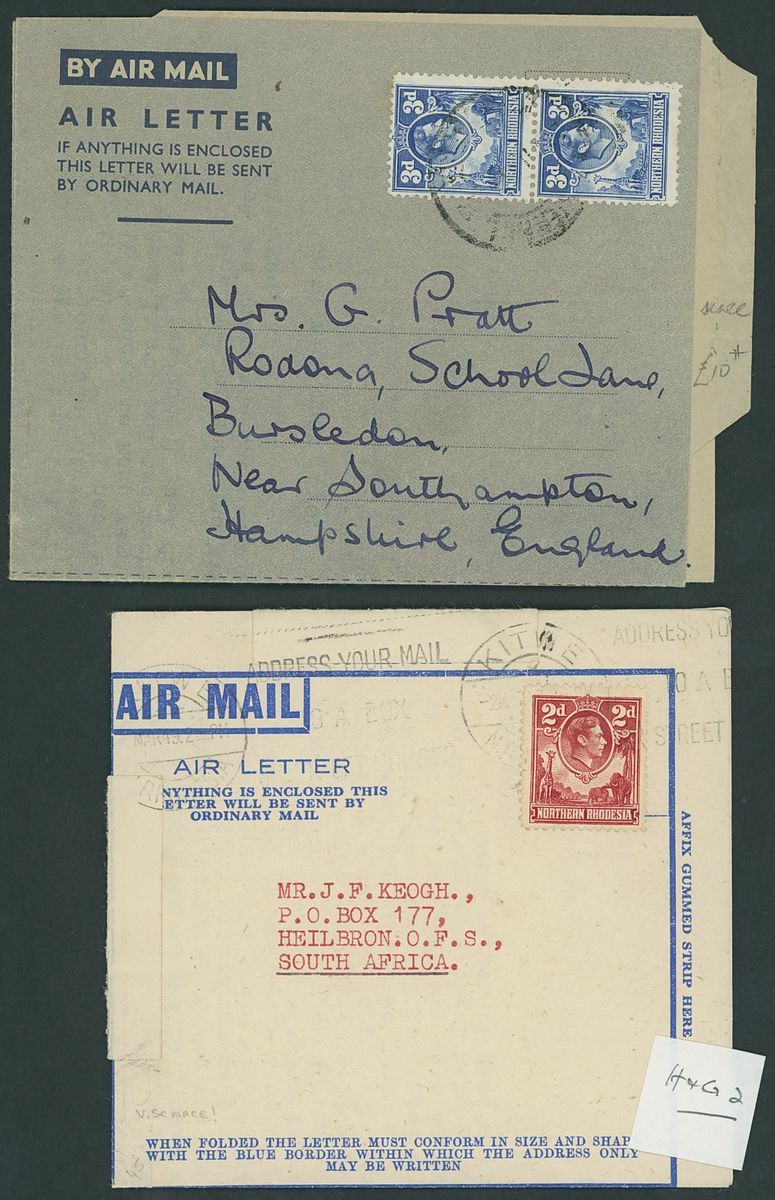 BY AIR MAIL
AIR LETTER
IF ANYTHING IS ENCLOSED
THIS LETTER WILL BE SENT
BY ORDINARY MAIL.
3d 3d
NORTHERN RHODESIA
3d 3d
NORTHERN RHODESIA
Mrs. G. Pratt
Rodona, School Lane,
Bursledon,
Near Southampton,
Hampshire, England.
£10
ADDRESS YOUR MAIL
TO A BOX
KITWE
ADDRESS YO
O A B
STREET
AIR MAIL
AIR LETTER
NYTHING IS ENCLOSED THIS
ETTER WILL BE SENT BY
ORDINARY MAIL
2d 2d
NORTHERN RHODESIA
AFFIX GUMMED STRIP HERE
MR.J.F.KEOGH.,
P.O.BOX 177,
HEILBRON.O.F.S.,
SOUTH AFRICA.
H&G 2
V. SCARCE!
WHEN FOLDED THE LETTER MUST CONFORM IN SIZE AND SHAP
WITH THE BLUE BORDER WITHIN WHICH THE ADDRESS ONLY
MAY BE WRITTEN